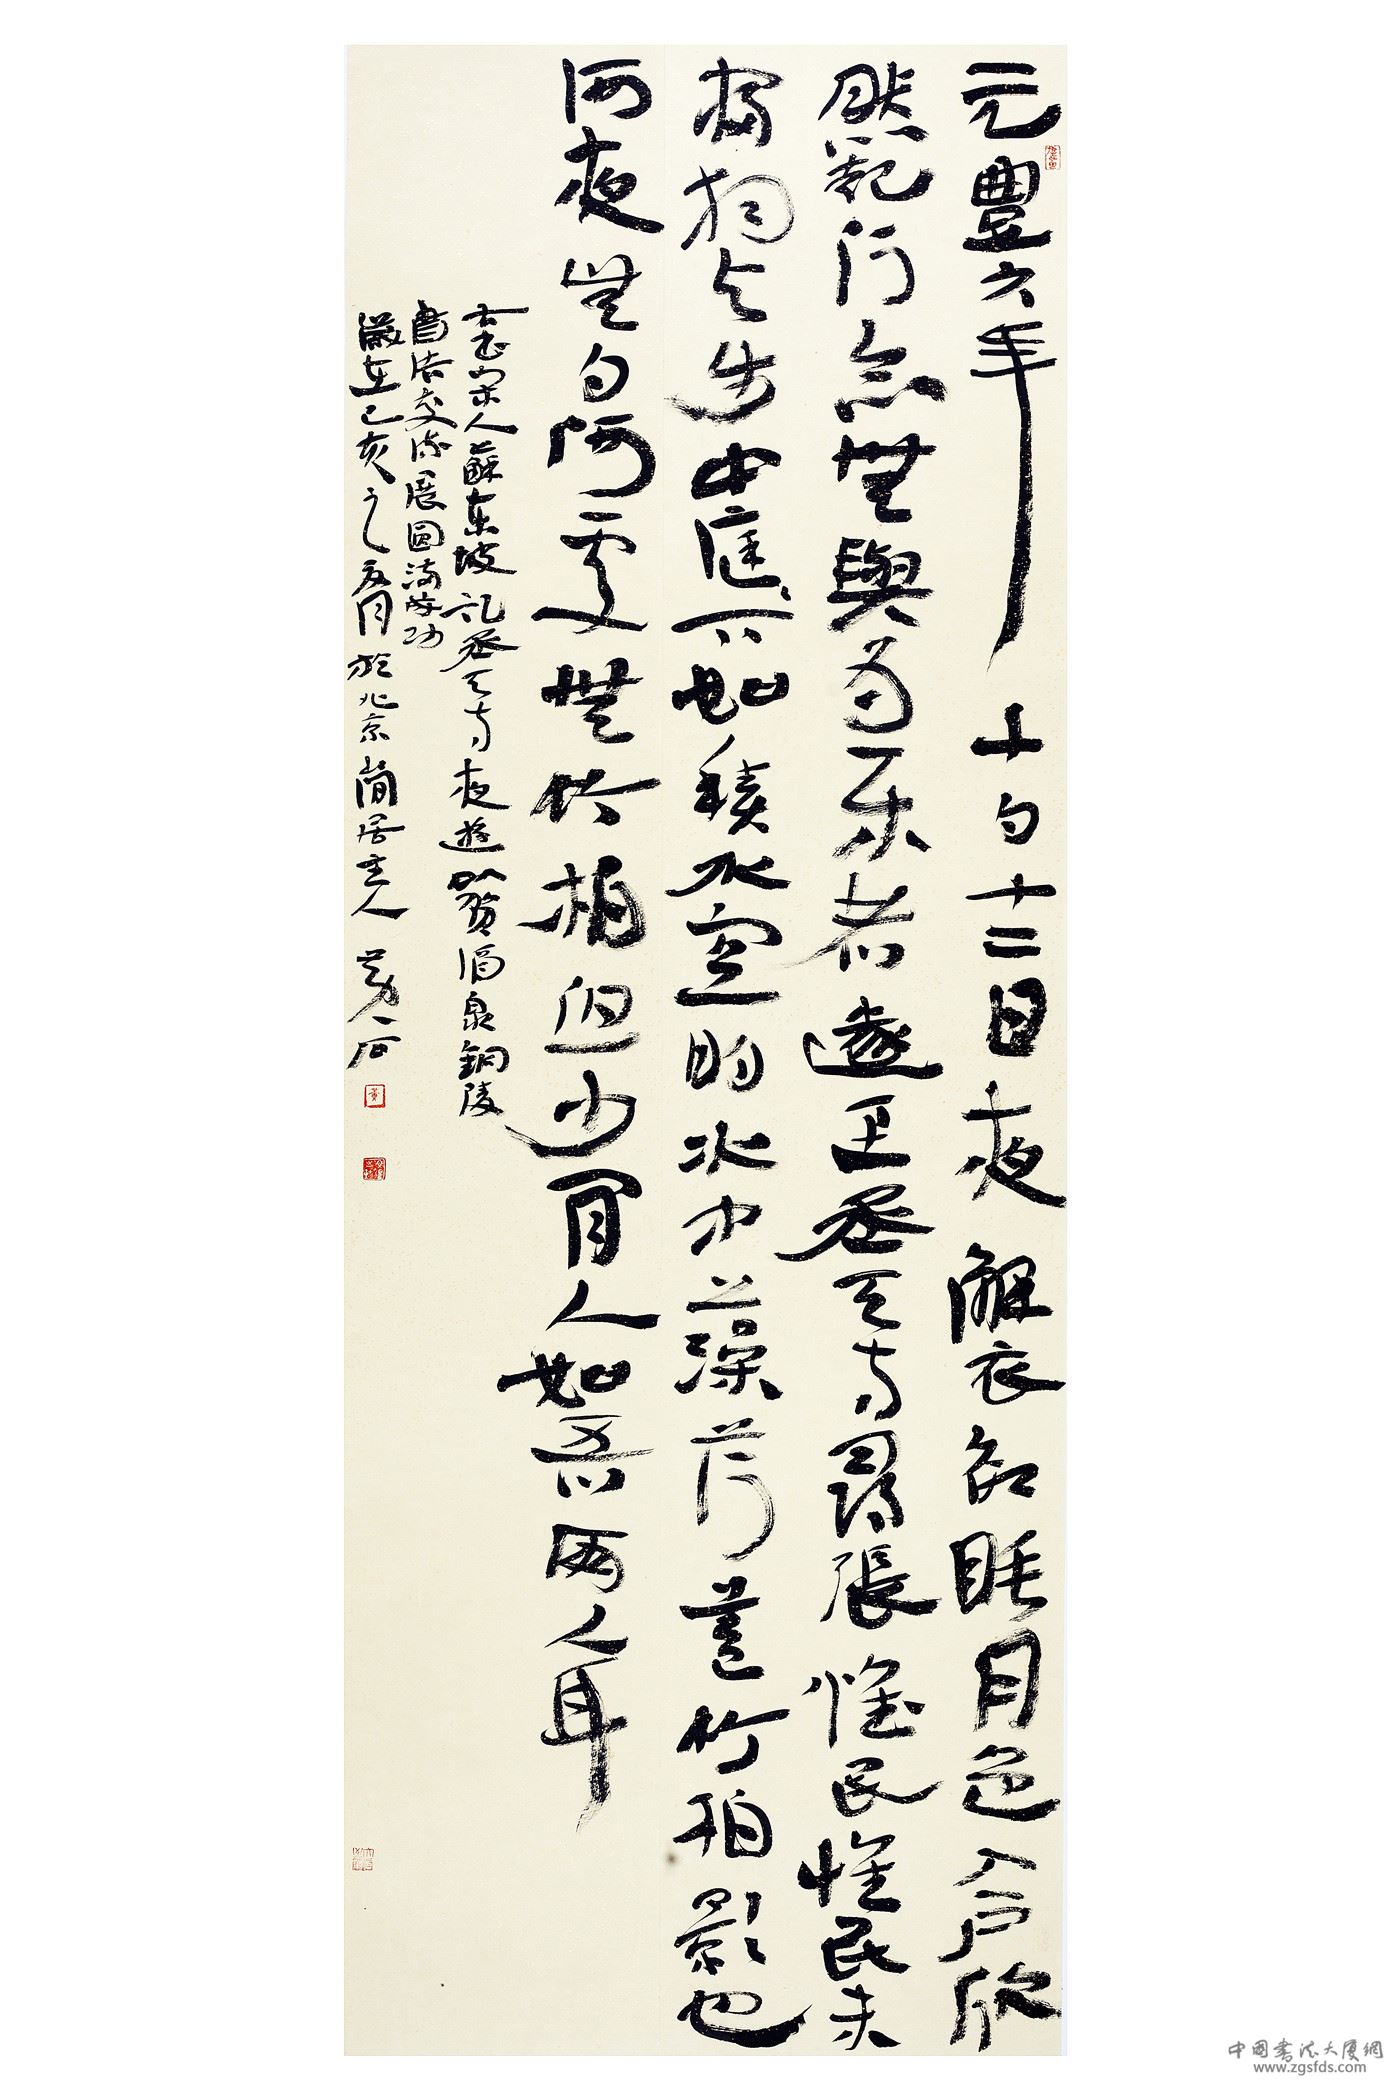 元豐六年十月十二日夜解衣欲睡月色入戶欣
然起行念無與為樂者遂至承天寺尋張懷民懷民未
寢相与步中庭〻下如積水空明水中藻荇蓋竹柏影也
何夜無月何處無竹柏但少閒人如吾兩人耳
右書宋人蘇東坡記承天寺夜遊賀酒泉銅陵
書法交流展圓滿成功
歲在己亥之夏月於北京簡居主人
中国書法大廈網
www.zgsfds.com